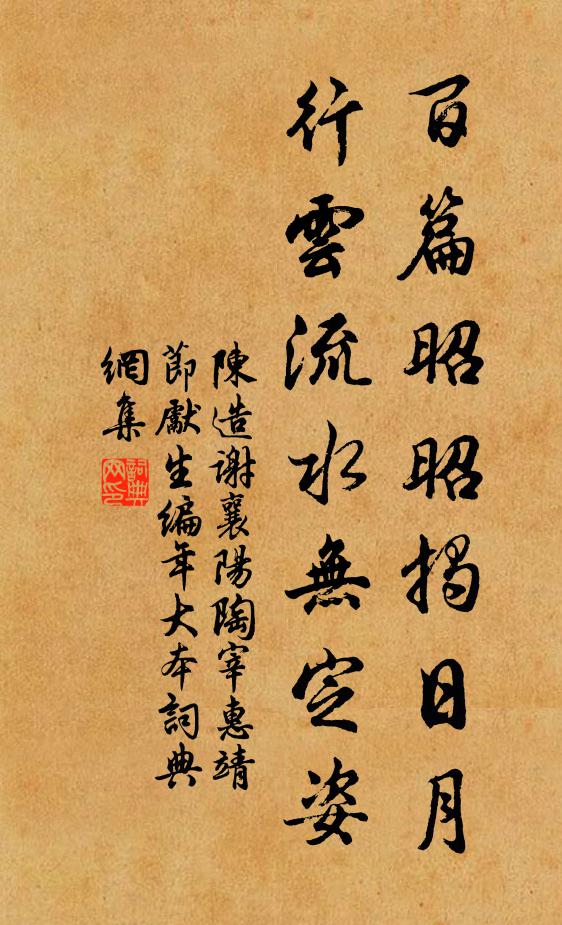 百篇昭昭揭日月
行雲流水無定姿
陳造謝襄陽陶宰惠靖
節獻生編年大本詞典
網集
詞典網印